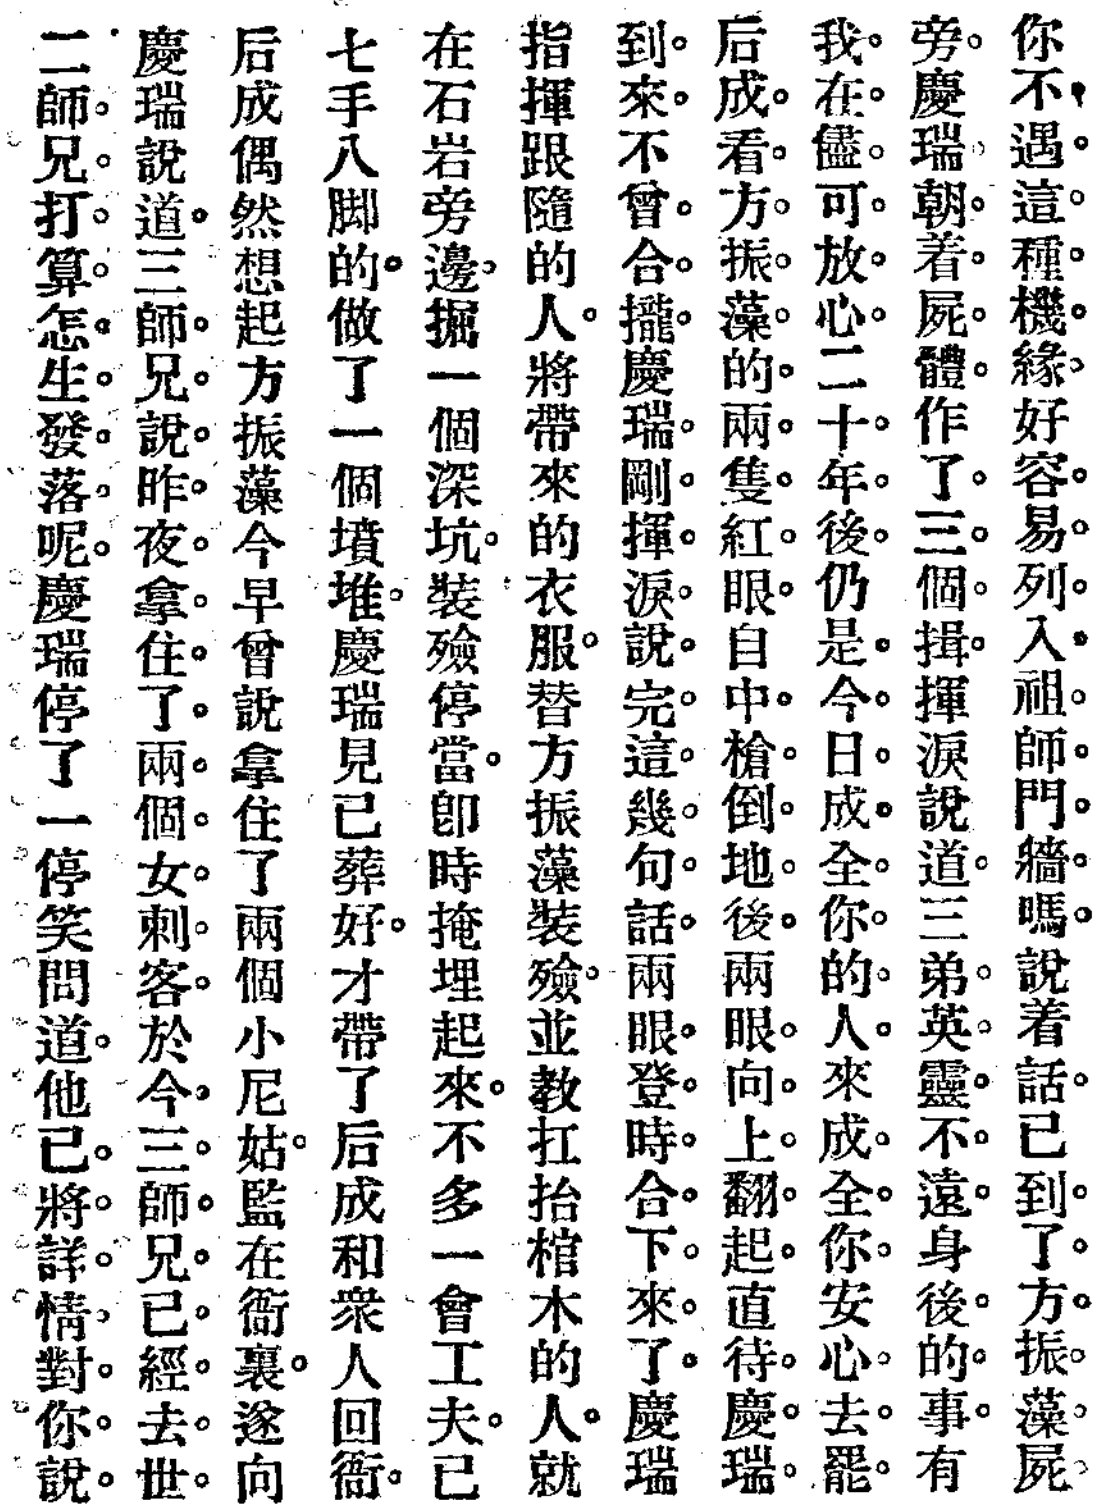 你不遇這種機緣好容易列入祖師門牆嗎說着話已到了方振藻屍
旁慶瑞朝着屍體作了三個揖揮淚說道三弟英靈不遠身後的事有
我在儘可放心二十年後仍是今日成全你的人來成全你安心去罷
后成看方振藻的兩隻紅眼自中槍倒地後兩眼向上翻起直待慶瑞
到來不曾合攏慶瑞剛揮淚說完這幾句話兩眼登時合下來了慶瑞
指揮跟隨的人將帶來的衣服替方振藻裝殮並教扛抬棺木的人就
在石岩旁邊掘一個深坑裝殮停當即時掩埋起來不多一會工夫已
七手八脚的做了一個墳堆慶瑞見已葬好才帶了后成和衆人回衙
后成偶然想起方振藻今早曾說拿住了兩個小尼姑監在衙裏遂向
慶瑞說道三師兄說昨夜拿住了兩個女刺客於今三師兄已經去世
二師兄打算怎生發落呢慶瑞停了一停笑問道他已將詳情對你說